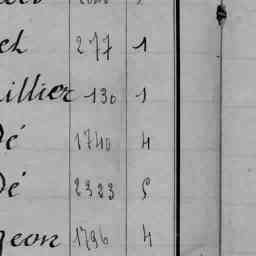 el 277 1
illier 130 1
dé 1740 4
dé 2323 5
geon 1796 4